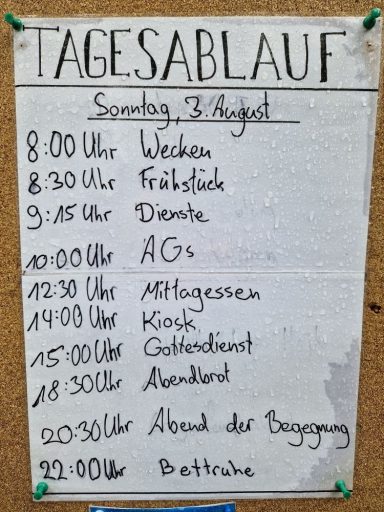 TAGESABLAUF
Sonntag, 3. August
8:00 Uhr Wecken
8:30 Uhr Frühstück
9:15 Uhr Dienste
10:00 Uhr AGs
12:30 Uhr Mittagessen
14:00 Uhr Kiosk
15:00 Uhr Gottesdienst
18:30 Uhr Abendbrot
20:30 Uhr Abend der Begegnung
22:00 Uhr Bettruhe